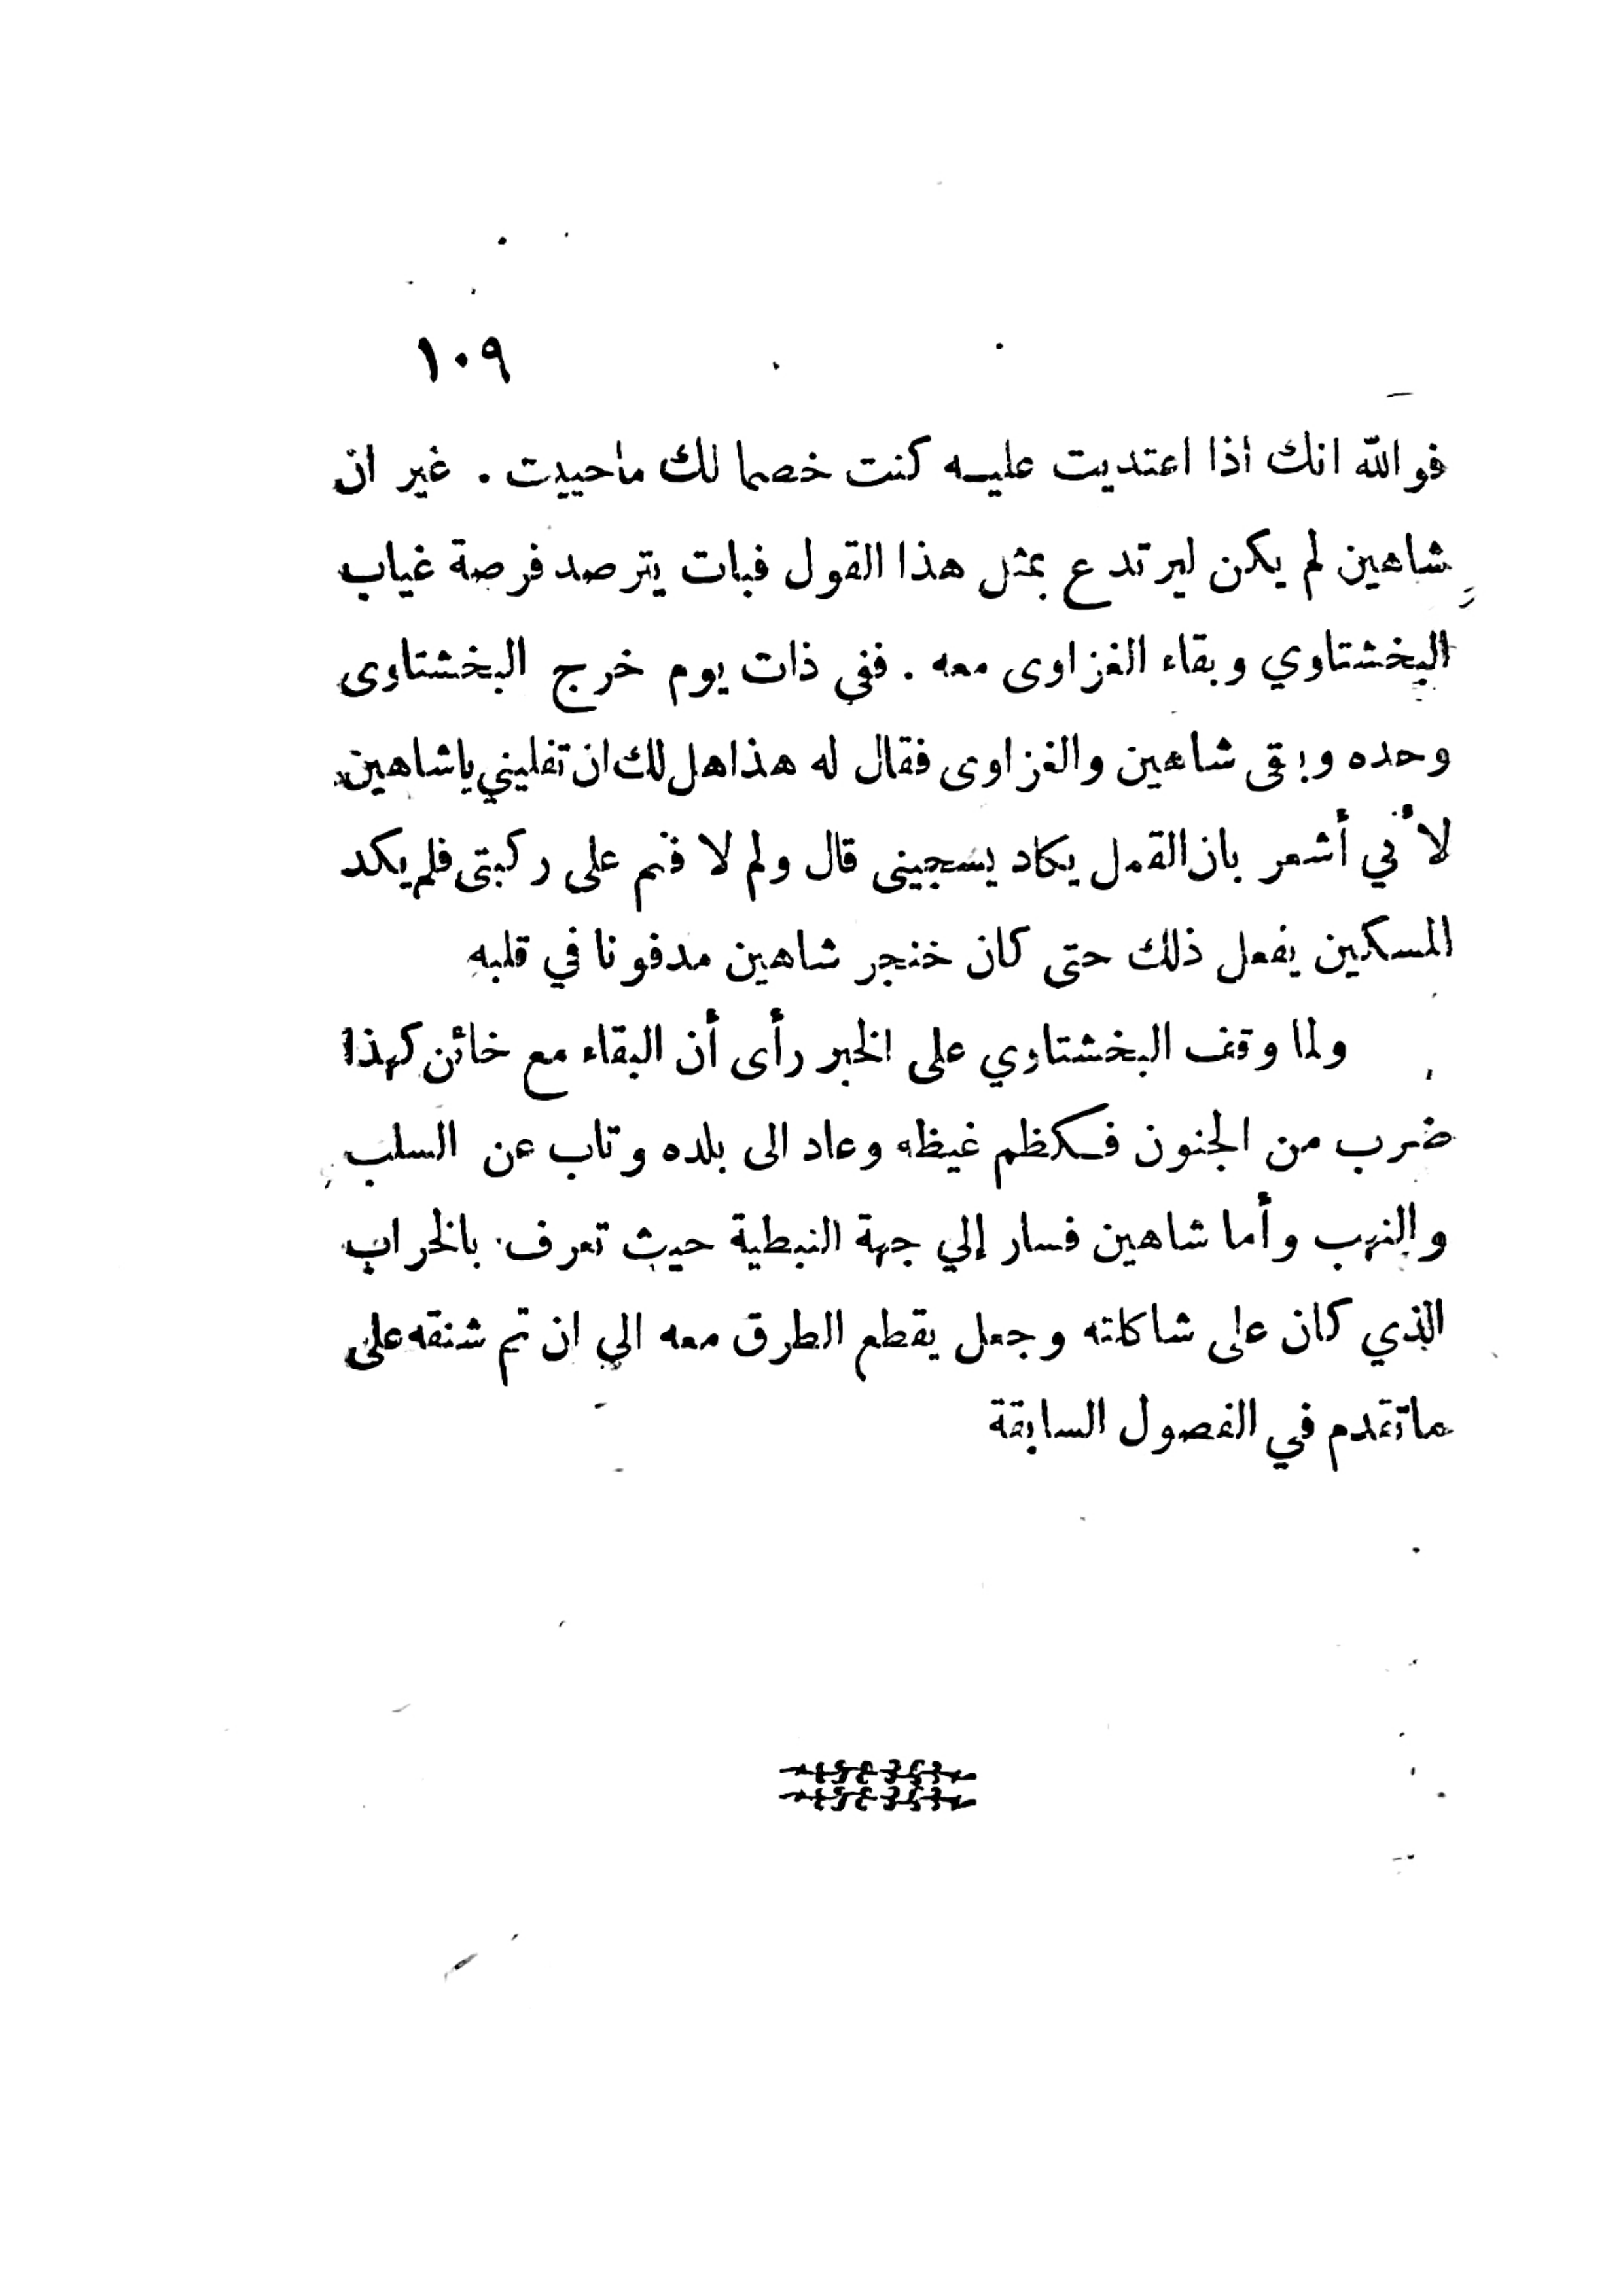 ١٠٩
فو الله انك اذا اعتديت عليه كنت خصما لك ماحييت . غير ان
شاهين لم يكن ليرتدع بمثل هذا القول فبات يترصد فرصة غياب
البخشتاوي وبقاء الغزاوى معه . ففي ذات يوم خرج البخشتاوى
وحده وبقى شاهين والغزاوى فقال له هذا هل لك ان تفليني ياشاهين
لأني أشعر بان القمل يكاد يسجينى قال ولم لا فنم على ركبتى فلم يكد
المسكين يفعل ذلك حتى كان خنجر شاهين مدفونا في قلبه
ولما وقف البخشتاوي على الخبر رأى أن البقاء مع خائن كهذا
ضرب من الجنون فكظم غيظه وعاد الى بلده وتاب عن السلب
والنهب وأما شاهين فسار إلي جهة النبطية حيث تعرف بالخراب
الذي كان على شاكلته وجعل يقطع الطرق معه الي ان تم شنقه على
ماتقدم في الفصول السابقة